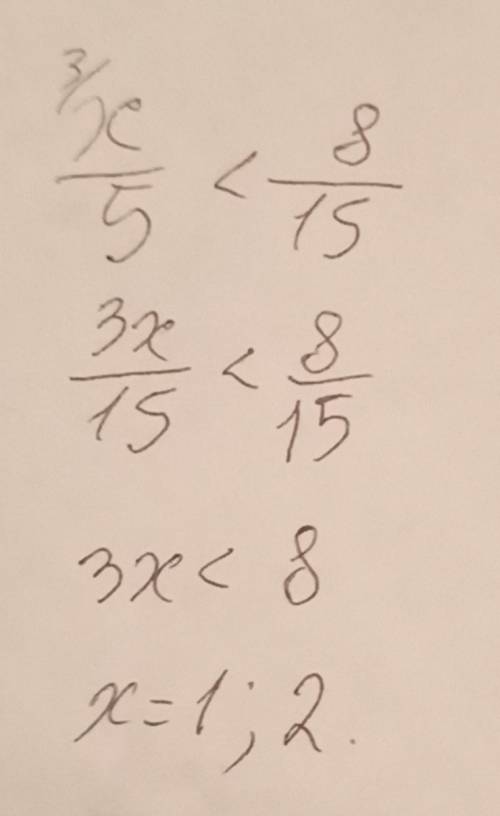 3/ x/5 < 8/15
3x/15 < 8/15
3x < 8
x = 1; 2.